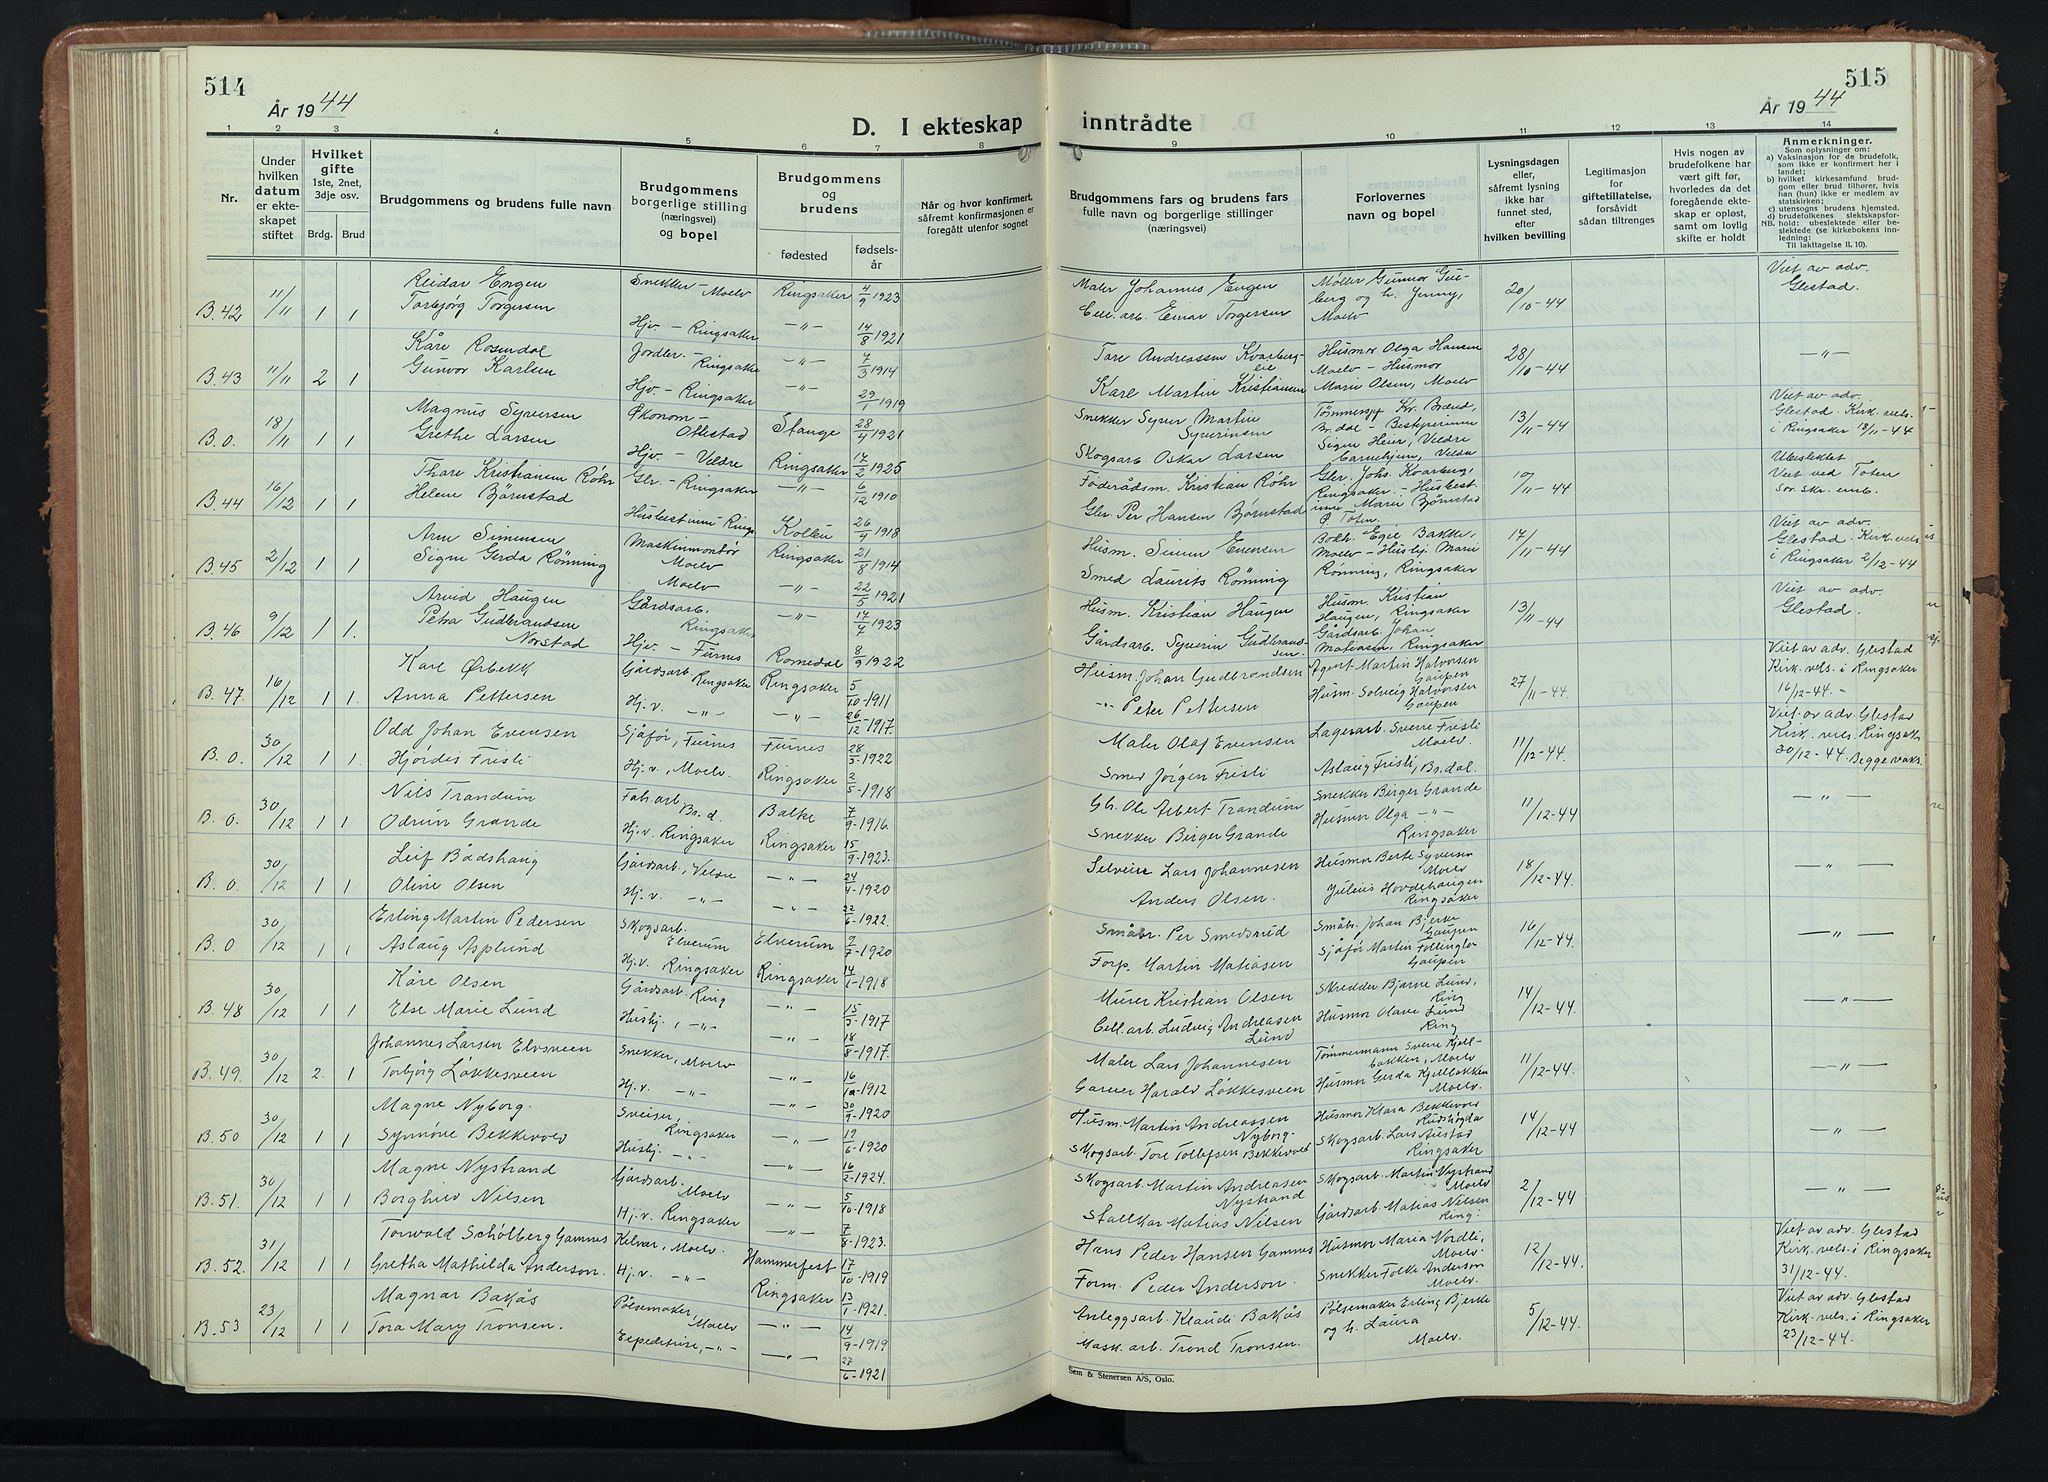 514
År 1944
D. I ekteskap
1 2 3 4 5 6 7 8
Nr.
Under hvilken datum er ekteskapet stiftet
Hvilket gifte 1ste, 2net, 3dje osv.
Brdg. Brud
Brudgommens og brudens fulle navn
Brudgommens borgerlige stilling (næringsvei) og bopel
Brudgommens og brudens
fødested
fødselsår
Når og hvor konfirmert, såfremt konfirmasjonen er foregått utenfor sognet
B. 42 11/11 1 1 Reidar Engen Snekker – Moelv Ringsaker 4/9 1923
Torbjørg Torgersen Hjv. – Ringsaker —"— 14/8 1921
B. 43 11/11 2 1 Kåre Rosendal Jordbr. – Ringsaker —"— 7/3 1914
Gunvor Karlsen Hjv – Ringsaker —"— 29/1 1919
B. 0. 18/11 1 1 Magnus Syversen Økonom – Ottestad Stange 28/4 1921
Grethe Larsen Hjv – Veldre Ringsaker 17/2 1925
B. 44 16/12 1 1 Thore Kristiansen Røhr Gbr. – Ringsaker —"— 6/12 1910
Helene Bjørnstad Husbestyrinne Rings. Kolbu 26/4 1918
B. 45 2/12 1 1 Arne Simensen Maskinmontør Moelv Ringsaker 21/8 1914
Signe Gerda Rønning Moelv —"— 22/5 1921
B. 46 9/12 1 1. Arvid Haugen Gårdsarb. Ringsaker —"— 17/7 1923
Petra Gudbrandsen Norstad Hjv. – Furnes Romedal 8/9 1922
B. 47. 16/12 1 1. Karl Ørbekk Gårdsarb. Ringsaker Ringsaker 5/10-1911
Anna Pettersen Hj.v. —"— —"— 26/12-1917.
B. 0. 30/12 1 1. Odd Johan Evensen Sjåfør, Furnes Furnes 28/3-1922
Hjørdis Frisli Hj.v., Moelv. Ringsaker 2/5-1918
B. 0. 30/12 1 1 Nils Trandum Fab.arb. Br.d. Balke 7/9-1916.
Odrun Grande Hj.v. Ringsaker Ringsaker 15/9-1923.
B. 0. 30/12 1 1 Leif Bådshaug Gårdsarb., Veldre —"— 24/4-1920
Oline Olsen Hj.v. —"— —"— 22/6-1922.
B. 0 30/12 1 1, Erling Martin Pedersen Skogsarb. Elverum Elverum 2/7-1920
Aslaug Asplund Hj.v. Ringsaker Ringsaker 14/1-1918
B. 48 30/12 1 1 Kåre Olsen Gårdsarb. Ring —"— 15/3-1917
Else Marie Lund Hushj., —"— —"— 18/8-1917.
B. 49. 30/12 2. 1 Johannes Larsen Elvsveen Snekker, Moelv —"— 16/10-1912
Torbjørg Løkkesveen Hj.v. —"— —"— 30/9-1920
B. 50 30/12 1 1, Magne Nyborg. Sveiser, Ringsaker —"— 19/6-1920
Synnøve Bekkevold Hushj. —"— —"— 16/2-1924.
B. 51. 30/12 1 1 Magne Nystrand Gårdsarb. Moelv —"— 5/10-1918
Borghild Nilsen Hj.v. Ringsaker —"— 7/8-1923.
B. 52. 31/12 1 1 Torvald Schølberg Gamnes Kelner, Moelv. Hammerfest 17/10-1919
Gretha Mathilda Anderson. Hj.v. —"— Ringsaker 13/1-1921.
B. 53 23/12 1 1 Magnar Bakås Pølsemaker, Moelv —"— 14/9-1919
Tora Mary Tronsen. Expeditrise, —"— —"— 27/6-1921
515
År 1944
inntrådte
9 10 11 12 13 14
Brudgommens fars og brudens fars fulle navn og borgerlige stillinger (næringsvei)
Forlovernes navn og bopel
Lysningsdagen eller, såfremt lysning ikke har funnet sted, efter hvilken bevilling
Legitimasjon for giftetillatelse, forsåvidt sådan tiltrenges
Hvis nogen av brudefolkene har vært gift før, hvorledes da det foregående ekteskap er opløst, samt om lovlig skifte er holdt
Anmerkninger.
Som oplysninger om:
a) Vaksinasjon for de brudefolk, som ikke er konfirmert her i landet;
b) hvilket kirkesamfund brudgom eller brud tilhører, hvis han (hun) ikke er medlem av statskirken;
c) utensogns brudens hjemsted.
d) brudefolkenes slektskapsforhold: ubeslektede eller beslektede (se kirkebokens innledning:
NB. Til iakttagelse II. 10).
Maler Johannes Engen Møller Gunnar Gulberg og h. Jenny, Moelv 20/10-44 Viet av adv. Glestad.
Cell. arb. Einar Torgersen
Tore Andreassen Kvarberglie Husmor Olga Hansen Moelv – Husmor Marie Olsen, Moelv 28/10-44 —"—
Karl Martin Kristiansen
Snekker Syver Martin Syverinsen Br.dal – Bestyrerinne Signe Heier, Veldre 13/11-44 Viet av adv. Glestad. Kirk. vels. i Ringsaker 18/11-44
Skogsarb. Oskar Larsen
Føderådsm. Kristian Røhr Gbr. Johs. Kvarberg, Ringsaker – Husbestinne Marie Bjørnstad Ø Toten. 10/11-44 Ubeslektet Viet ved Toten Sor.skr. emb.
Gbr. Per Hansen Bjørnstad
Husm. Simen Evensen Moelv – Husbj. Marie Rønning, Ringsaker 17/11-44 Viet av adv. Glestad. Kirk. vels. i Ringsaker 2/12-44
Smed Laurits Rønning
Husm. Kristian Haugen Husm. Kristian Haugen, Ringsaker 13/11-44 Viet av adv. Glestad.
Gårdsarb. Syverin Gudbrandsen Gårdsarb. Johan Mathiasen, Ringsaker
Husm. Johan Gudbrandsen Agent Martin Halvorsen Gaupen 27/11-44. Viet av adv. Glestad Kirk. vels. i Ringsaker 16/12-44. –
—"— Peter Pettersen Husm. Solveig Halvorsen Gaupen
Maler Olaf Evensen Lagerarb. Sverre Frisli Moelv. 11/12-44. Viet av adv. Glestad Kirk. vels. Ringsaker 30/12-44. Begge vaks.
Smed Jørgen Frisli Aslaug Frisli, Br.dal.
Gb. Ole Albert Trandum Snekker Birger Grande 11/12-44 —"—
Snekker Birger Grande Husmor Olga —"— Ringsaker
Selveier Lars Johannesen Husmor Berte Syversen Moelv 18/12-44. —"—
Anders Olsen. Julius Hovdehaugen Ringsaker
Småbr. Per Smedsrud Småbr. Johan Bjerke Gaupen 16/12-44. —"—
Forp. Martin Matiasen Sjåfør Martin Follinglo Gaupen
Murer Kristian Olsen Skredder Bjarne Lund, Ring 14/12-44. —"—
Cell. arb. Ludvig Andreasen Lund Husmor Olave Lund Ring
Maler Lars Johannesen Tømmermann Sverre Kjellbakken, Moelv 11/12-44. —"—
Garver Harald Løkkesveen Husmor Gerda Kjellbakken Moelv.
Husm. Martin Andreassen Nyborg. Husmor Klara Bekkevold Rudshøgda 14/12-44 —"—
Skogsarb. Tore Tollefsen Bekkevold Skogsarb. Lars Austad Ringsaker
Skogsarb. Martin Andreasen Nystrand Skogsarb. Martin Nystrand Moelv 2/12-44 —"—
Stallkar Matias Nilsen Gårdsarb. Matias Nilsen Ring.
Hans Peder Hansen Gamnes Husmor Maria Nordli, Moelv. 12/12-44. Viet av adv. Glestad Kirk. vels. i Ringsaker 31/12-44.
Form. Peder Anderson. Snekker Folke Anderson Moelv.
Anleggsarb. Klaudi Bakås Pølsemaker Erling Bjerke og h. Laura Moelv. 5/12-44. Viet av adv. Glestad Kirk. vels. i Ringsaker 23/12-44.
Mask. arb. Trond Tronsen.
Sem & Stenersen A/S, Oslo.